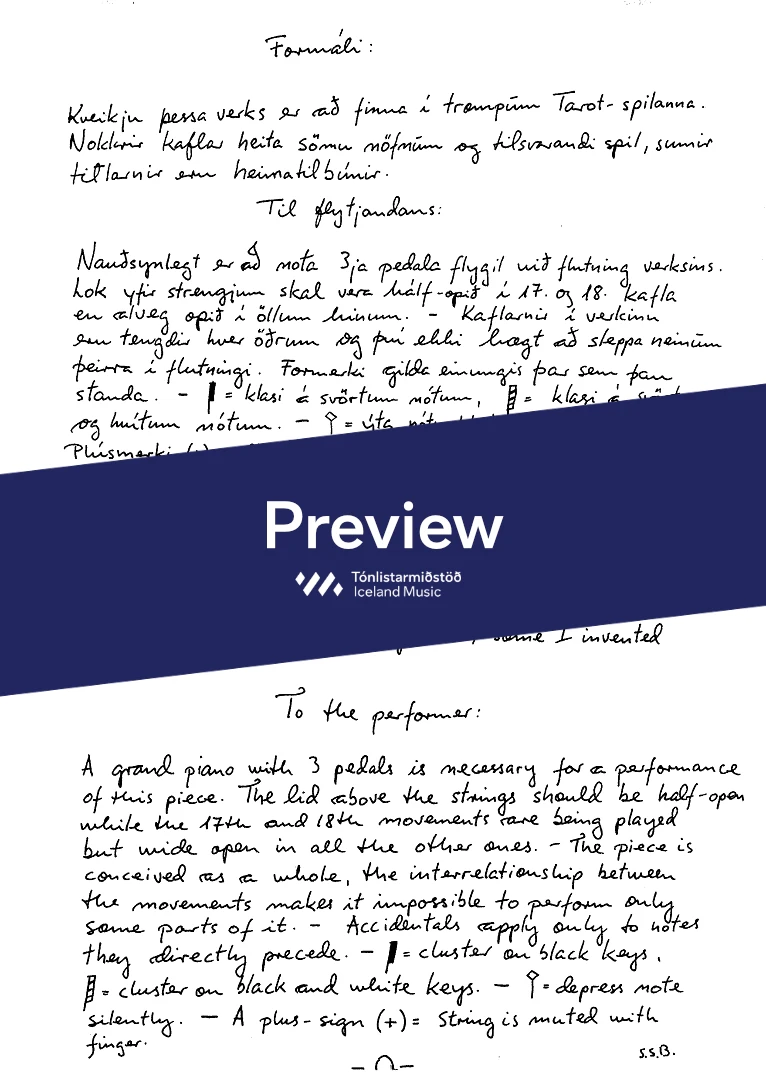 Formáli:
Kveikju þessa verks er að finna í trompum Tarot-spilanna.
Nokkrir kaflar heita sömu nöfnum og tilsvarandi spil, sumir
titlarnir eru heimatilbúnir.
Til flytjandans:
Nauðsynlegt er að nota 3ja pedala flygil við flutning verksins.
Lok yfir strengjum skal vera hálf-opið í 17. og 18. kafla
en alveg opið í öllum hinum. - Kaflarnir í verkinu
eru tengdir hver öðrum og því ekki hægt að sleppa neinum
þeirra í flutningi. Formerki gilda einungis þar sem þau
standa. - = klasi á svörtum nótum, = klasi á
og hvítum nótum. - = ýta
Plúsmerki
Preview
Tónlistarmiðstöð
Iceland Music
some I invented
To the performer:
A grand piano with 3 pedals is necessary for a performance
of this piece. The lid above the strings should be half-open
while the 17th and 18th movements are being played
but wide open in all the other ones. - The piece is
conceived as a whole, the interrelationship between
the movements makes it impossible to perform only
some parts of it. - Accidentals apply only to notes
they directly precede. - = cluster on black keys,
= cluster on black and white keys. - = depress note
silently. - A plus-sign (+) = string is muted with
finger.
S.S.B.